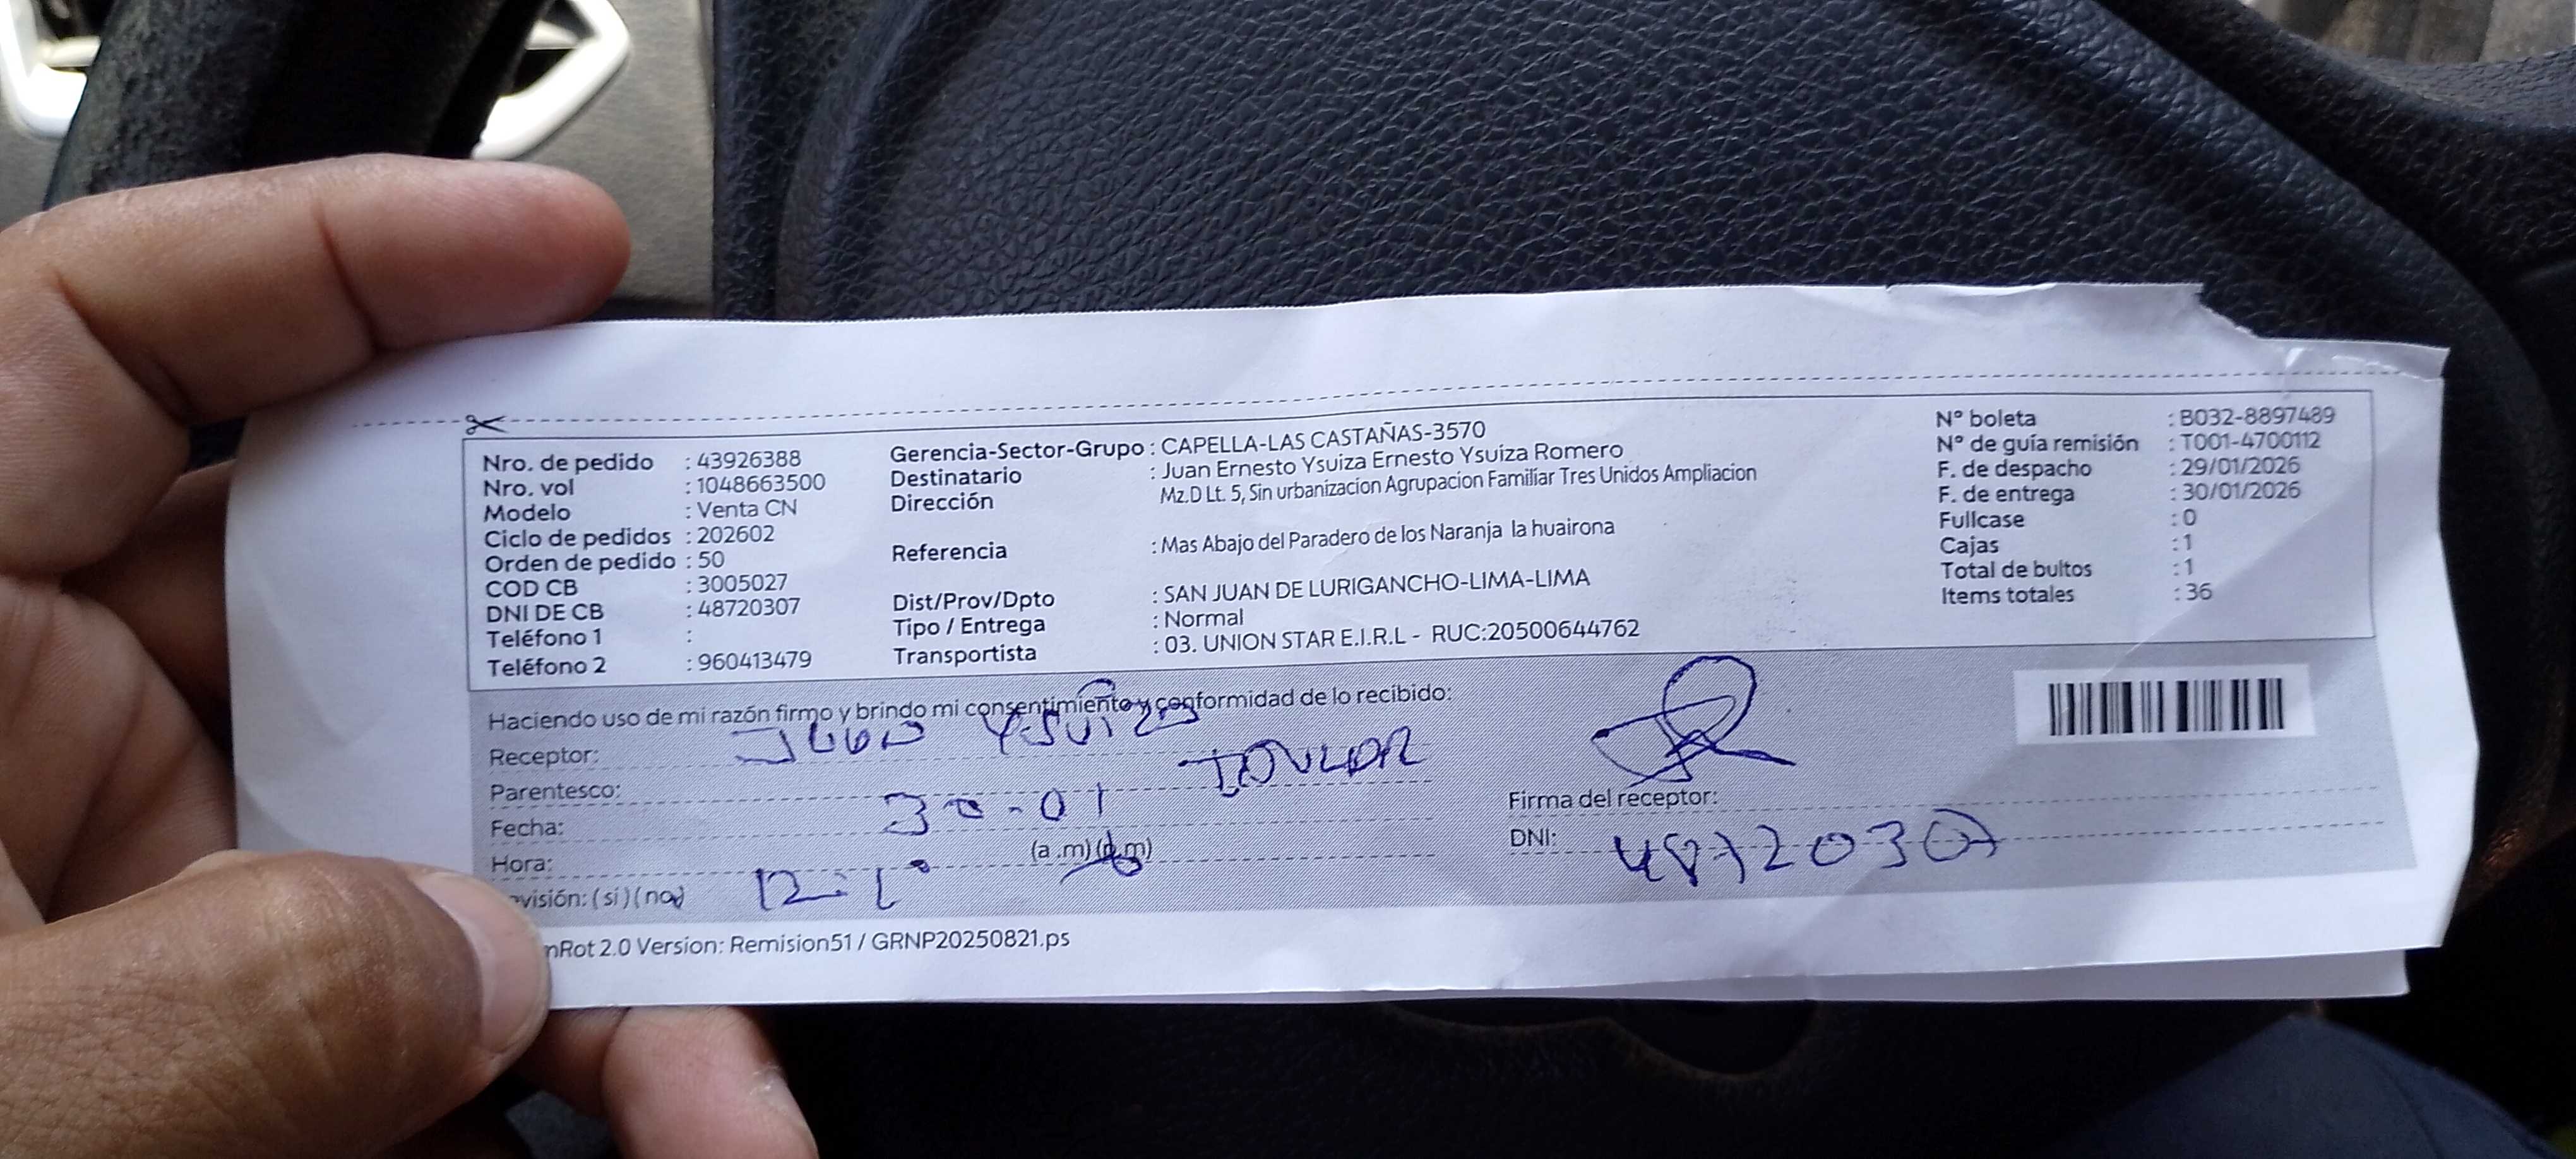 Nro. de pedido : 43926388
Nro. vol : 1048663500
Modelo : Venta CN
Ciclo de pedidos : 202602
Orden de pedido : 50
COD CB : 3005027
DNI DE CB : 48720307
Teléfono 1 :
Teléfono 2 : 960413479
Gerencia-Sector-Grupo : CAPELLA-LAS CASTAÑAS-3570
Destinatario : Juan Ernesto Ysuiza Ernesto Ysuiza Romero
Dirección Mz.D Lt. 5, Sin urbanizacion Agrupacion Familiar Tres Unidos Ampliacion
Referencia : Mas Abajo del Paradero de los Naranja la huairona
Dist/Prov/Dpto : SAN JUAN DE LURIGANCHO-LIMA-LIMA
Tipo / Entrega : Normal
Transportista : 03. UNION STAR E.I.R.L - RUC:20500644762
N° boleta : B032-8897489
N° de guía remisión : T001-4700112
F. de despacho : 29/01/2026
F. de entrega : 30/01/2026
Fullcase : 0
Cajas : 1
Total de bultos : 1
Items totales : 36
Haciendo uso de mi razón firmo y brindo mi consentimiento y conformidad de lo recibido:
Receptor: Juan Ysuiza
Parentesco:
Fecha: 30-01
Hora: (a .m) (p.m)
visión: (si) (no)
Firma del receptor:
DNI: 48720307
nRot 2.0 Version: Remision51 / GRNP20250821.ps